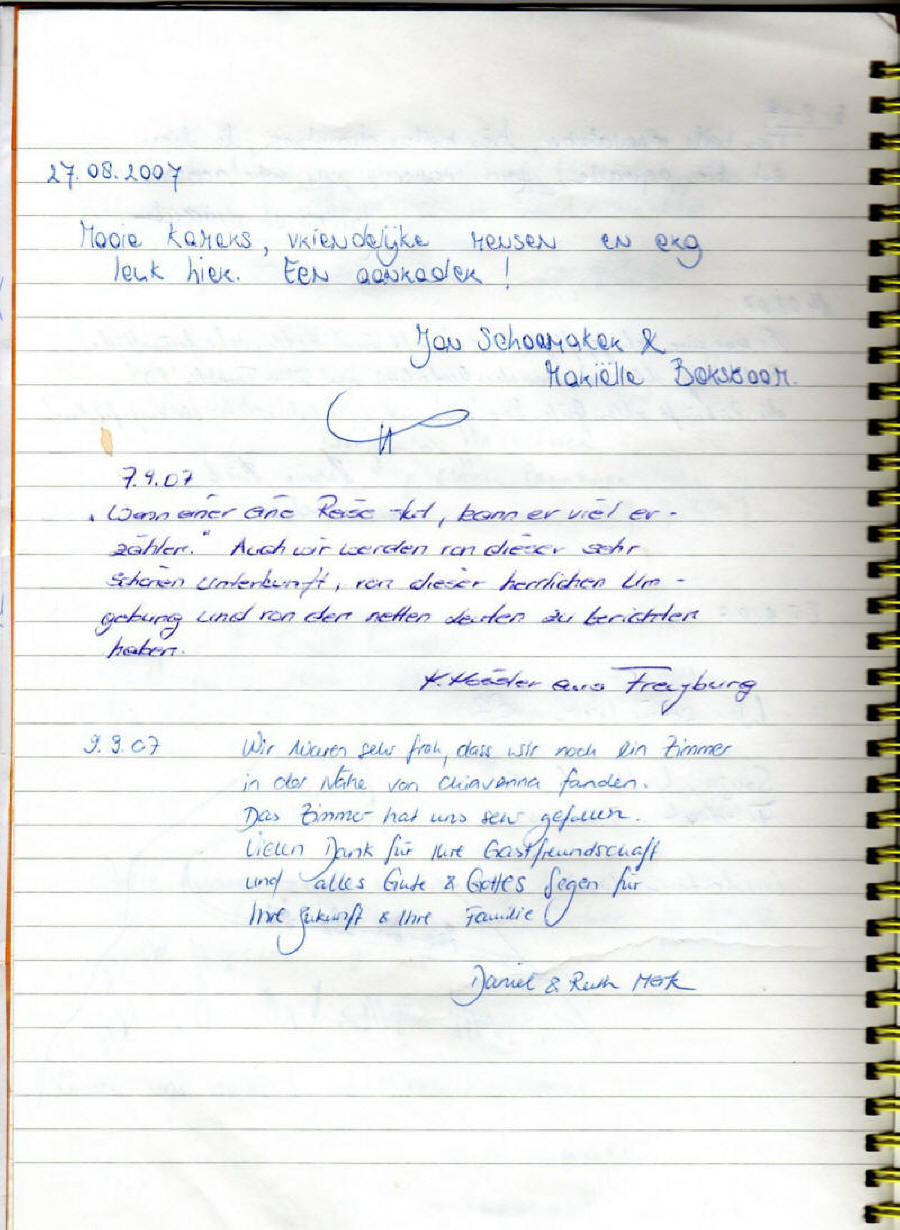 27.08.2007
Mooie kamers, vriendelijke mensen en erg
leuk hier. Een aanrader!
Jan Schoemaker &
Mariëlle Boksboom.
7.9.07
„Wenn einer eine Reise tut, kann er viel er-
zählen." Auch wir werden von dieser sehr
schönen Unterkunft, von dieser herrlichen Um-
gebung und von den netten Leuten zu berichten
haben.
aus Freyburg
9.9.07 Wir waren sehr froh, dass wir noch ein Zimmer
in der Nähe von Chiavenna fanden.
Das Zimmer hat uns sehr gefallen.
Vielen Dank für Ihre Gastfreundschaft
und alles Gute & Gottes Segen für
Ihre Zukunft & Ihre Familie
Daniel & Ruth